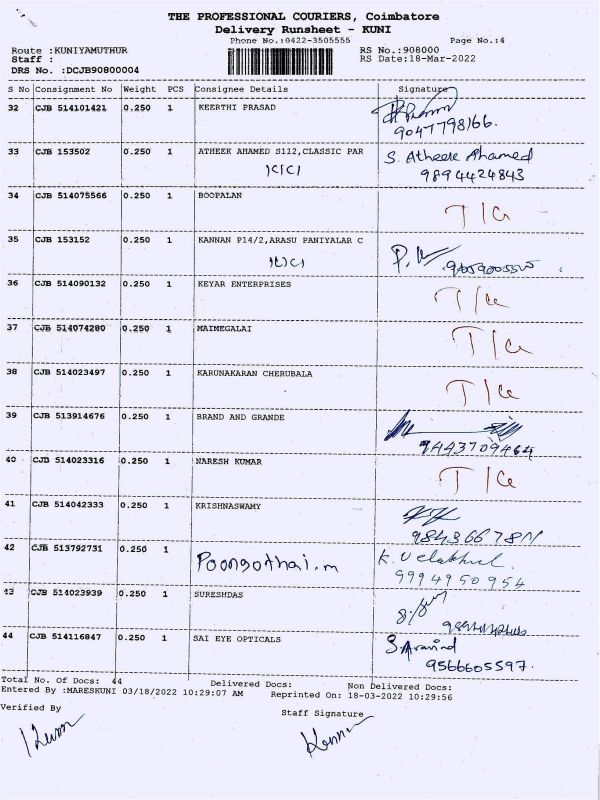 THE PROFESSIONAL COURIERS, Coimbatore
Delivery Runsheet - KUNI
Phone No.:0422-3505555 Page No.:4
Route :KUNIYAMUTHUR RS No.:908000
Staff : RS Date:18-Mar-2022
DRS No. :DCJB90800004
S No Consignment No Weight PCS Consignee Details Signature
32 CJB 514101421 0.250 1 KEERTHI PRASAD
9047798166.
33 CJB 153502 0.250 1 ATHEEK AHAMED S112,CLASSIC PAR S. Atheek Ahamed
9894424843
34 CJB 514075566 0.250 1 BOOPALAN
35 CJB 153152 0.250 1 KANNAN P14/2,ARASU PANIYALAR C
36 CJB 514090132 0.250 1 KEYAR ENTERPRISES
37 CJB 514074280 0.250 1 MAIMEGALAI
38 CJB 514023497 0.250 1 KARUNAKARAN CHERUBALA
39 CJB 513914676 0.250 1 BRAND AND GRANDE
9443709464
40 CJB 514023316 0.250 1 NARESH KUMAR
41 CJB 514042333 0.250 1 KRISHNASWAMY
42 CJB 513792731 0.250 1 Poongothai.m
9994950954
43 CJB 514023939 0.250 1 SURESHDAS
44 CJB 514116847 0.250 1 SAI EYE OPTICALS S.Aravind
9566605597.
Total No. Of Docs: 44 Delivered Docs: Non Delivered Docs:
Entered By :MARESKUNI 03/18/2022 10:29:07 AM Reprinted On: 18-03-2022 10:29:56
Verified By Staff Signature